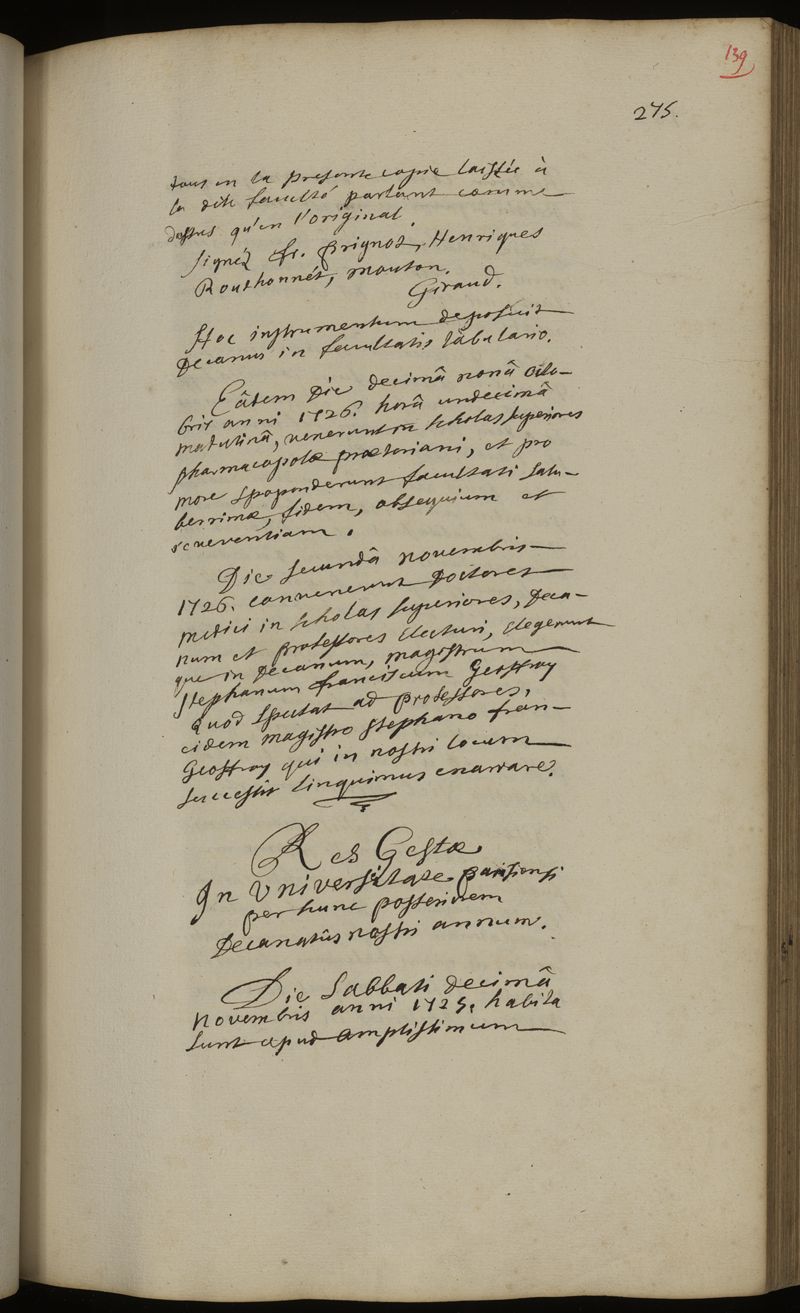 139
275.
tant en la presente copie laissée à
la dite faculté partant comme
dessus qu'en l'original.
signéz fr. Prignot, Henriques
Routhonnét, mouton.
Giraud.
Hoc instrumentum deposuit
Decanus in facultatis tabulario.
Eâdem Die decimâ nonâ octo-
bris anni 1726. horâ undecimâ
matutinâ, venerunt in scholas superiores
pharmacopolæ prætoriani, et pro
more spoponderunt facultati salu-
berrimæ, fidem, obsequium et
reverentiam.
Die secundâ novembris
1726. convenerunt Doctores
medici in scholas superiores, Deca-
num et professores electuri, elegerunt
que in Decanum, magistrum
stephanum franciscum Geoffroy
quod spectat ad professores,
eidem magistro stephano fran-
Geoffroy qui in nostri locum
successit linquimus enarrare.
Res Gestæ
In Universitate parisiensi
per hunc posteriorem
Decanatûs nostri annum.
Die Sabbati decimâ
novembris anni 1725. habita
sunt apud amplissimum